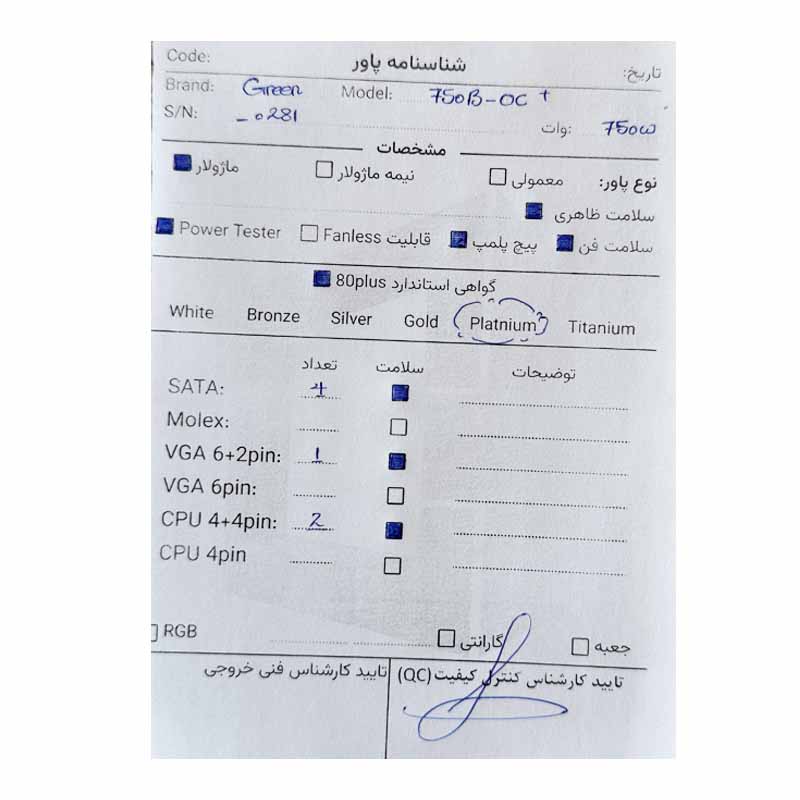 Code: شناسنامه پاور تاریخ:
Brand: Green Model: 750B-OC +
S/N: _0281 وات: 750w
مشخصات
نوع پاور: معمولی نیمه ماژولار ماژولار
سلامت ظاهری
سلامت فن پیچ پلمپ قابلیت Fanless Power Tester
گواهی استاندارد 80plus
White Bronze Silver Gold Platnium Titanium
تعداد سلامت توضیحات
SATA: 4
Molex:
VGA 6+2pin: 1
VGA 6pin:
CPU 4+4pin: 2
CPU 4pin
RGB گارانتی جعبه
تایید کارشناس کنترل کیفیت (QC) تایید کارشناس فنی خروجی